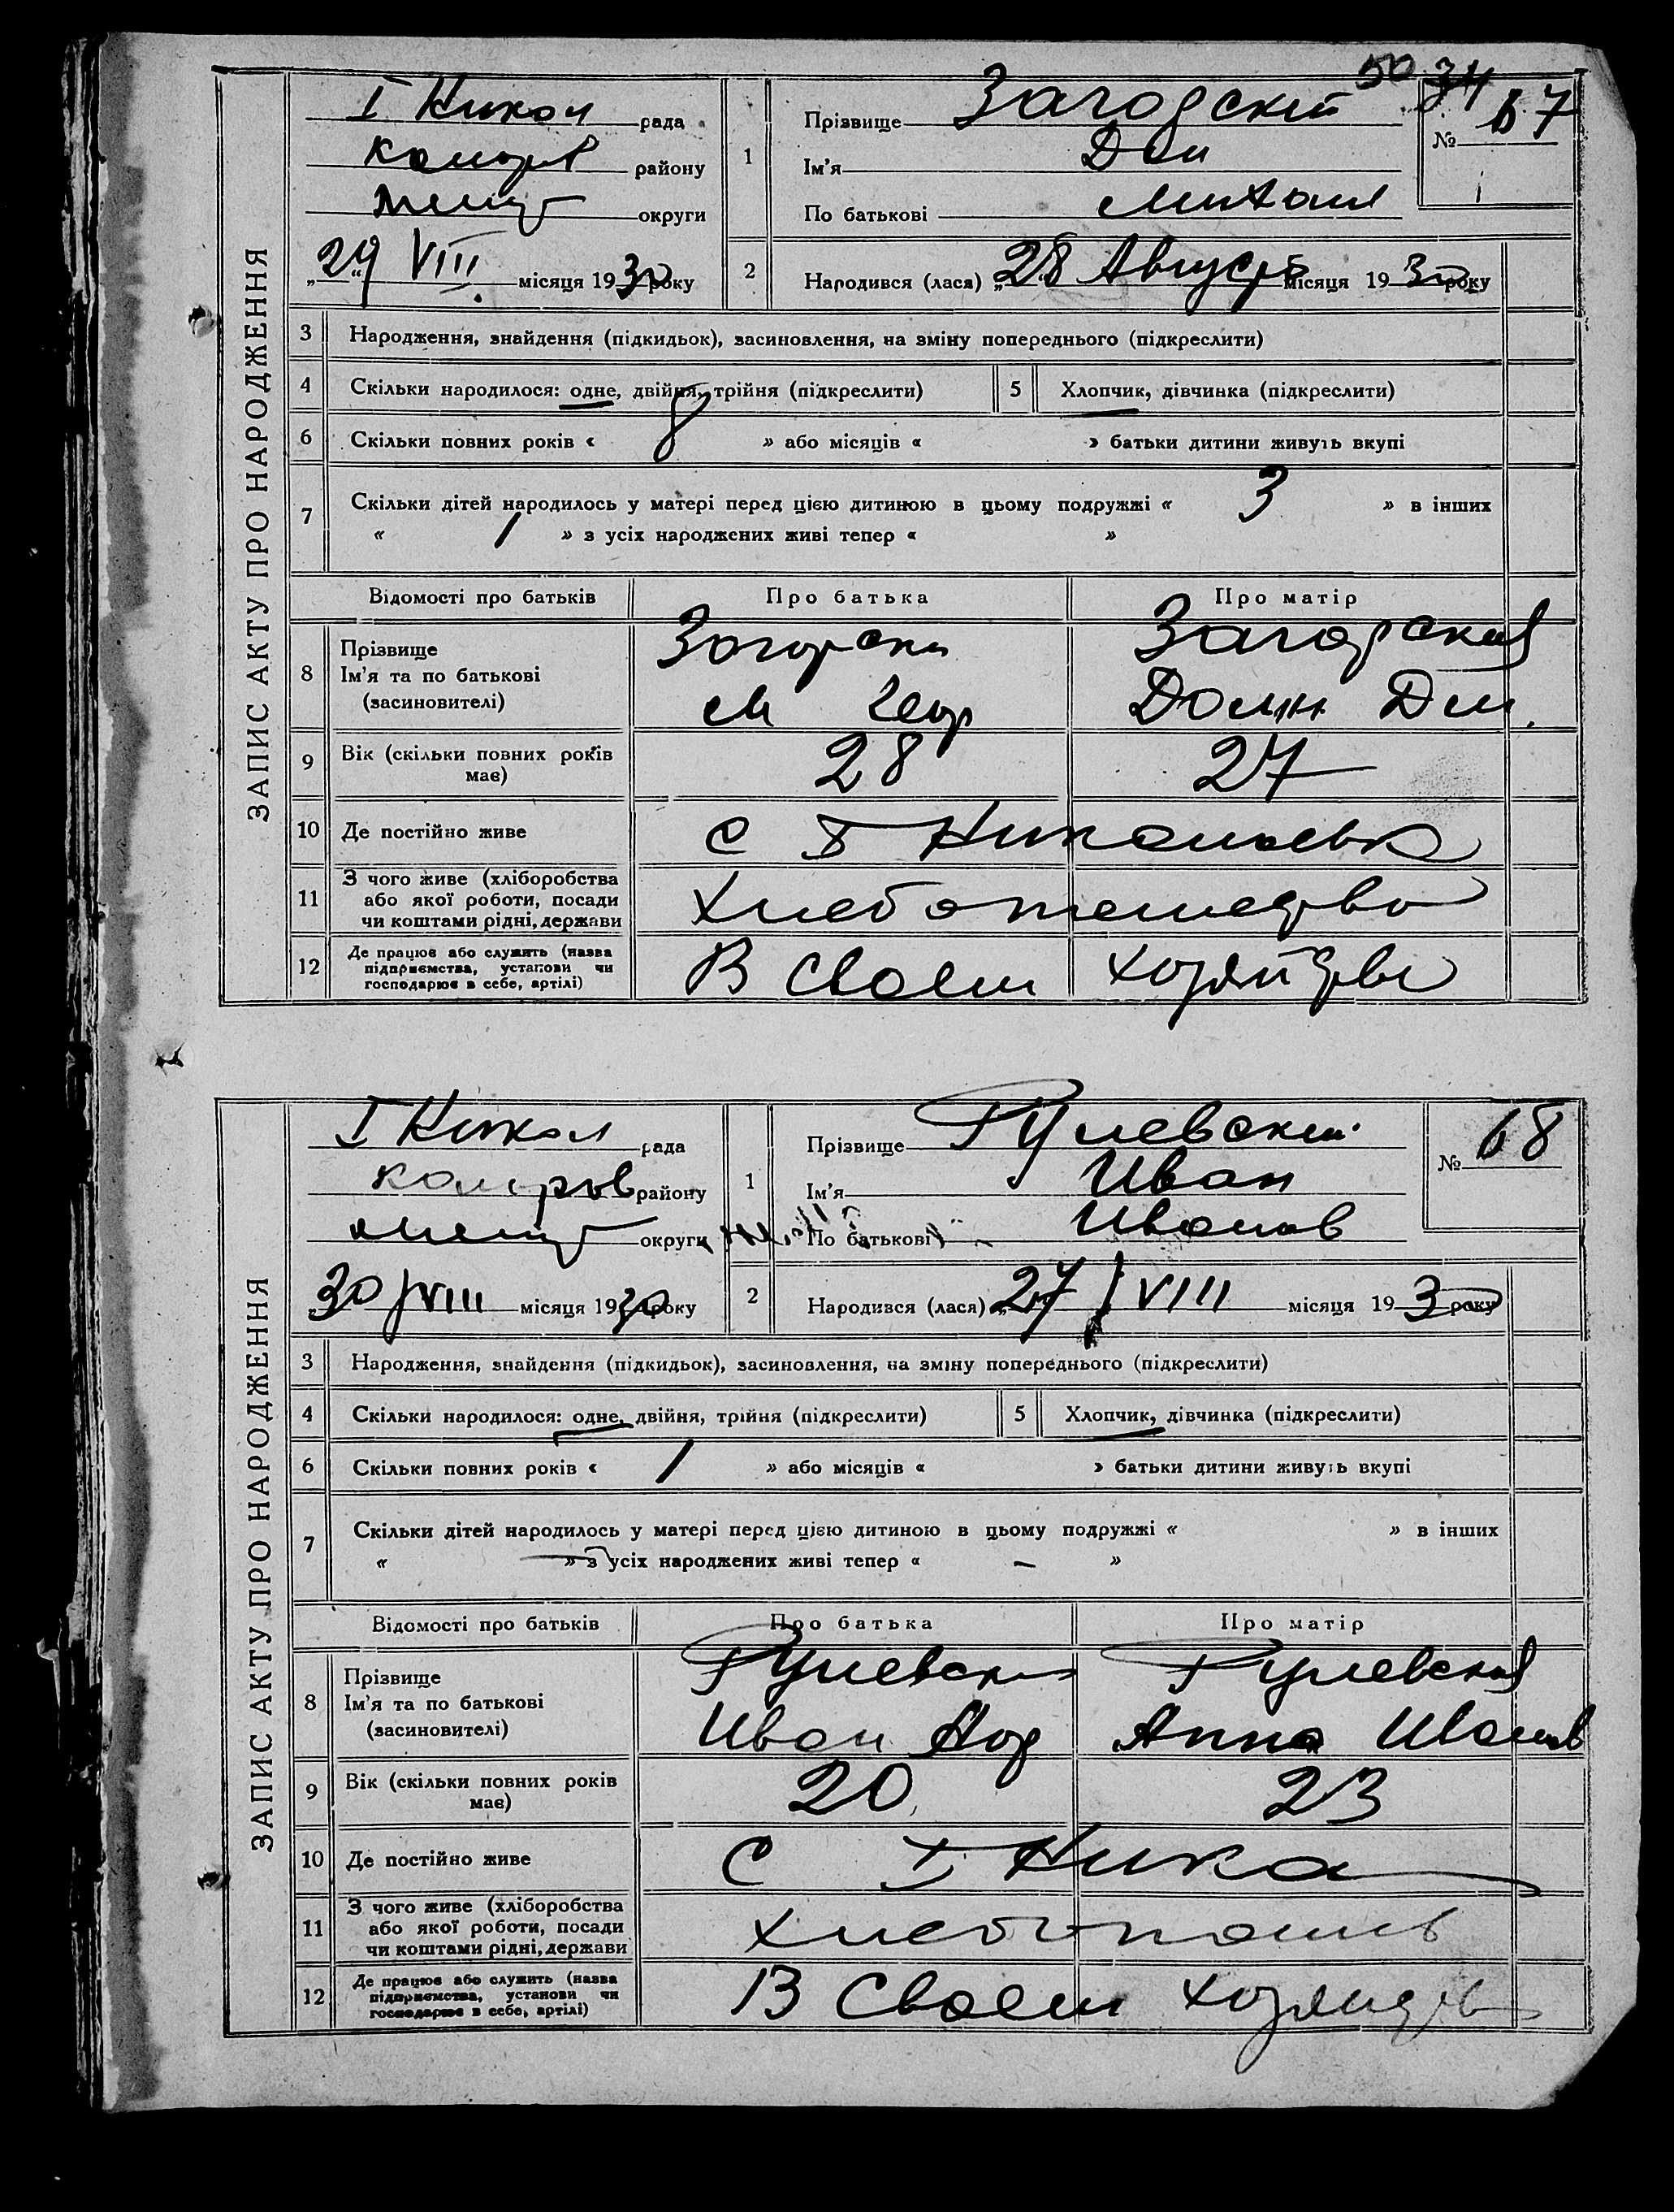 50 34
І Никол рада
район
округи
29 VIII місяця 1930 року
1
Прізвище Загорский
Ім'я Дем
По батькові Михаил
№ 67
2
Народився (лася) „28 Август місяця 1930 року
ЗАПИС АКТУ ПРО НАРОДЖЕННЯ
3 Народження, знайдення (підкидьок), засиновлення, на зміну попереднього (підкреслити)
4 Скільки народилося: одне, двійня, трійня (підкреслити) 5 Хлопчик, дівчинка (підкреслити)
6 Скільки повних років « 8 » або місяців « » батьки дитини живуть вкупі
7 Скільки дітей народилось у матері перед цією дитиною в цьому подружжі « 3 » в інших
« / » з усіх народжених живі тепер « »
Відомості про батьків Про батька Про матір
8 Прізвище Загорски Загорская
Ім'я та по батькові М Геор Домн Дем.
(засиновителі)
9 Вік (скільки повних років має) 28 27
10 Де постійно живе с І Никольевка
11 З чого живе (хліборобства
або якої роботи, посади
чи коштами рідні, держави
Хлебопашество
12 Де працює або служить (назва
підприємства, установи чи
господарює в себе, артілі)
В Своем хозяйстве
І Никол рада
району
округи
30/VIII місяця 1930 року
1
Прізвище Рулевский
Ім'я Иван
По батькові Иванов
№ 68
2
Народився (лася) „27/VIII місяця 193 року
ЗАПИС АКТУ ПРО НАРОДЖЕННЯ
3 Народження, знайдення (підкидьок), засиновлення, на зміну попереднього (підкреслити)
4 Скільки народилося: одне, двійня, трійня (підкреслити) 5 Хлопчик, дівчинка (підкреслити)
6 Скільки повних років « 1 » або місяців « » батьки дитини живуть вкупі
7 Скільки дітей народилось у матері перед цією дитиною в цьому подружжі « » в інших
« — » з усіх народжених живі тепер « – »
Відомості про батьків Про батька Про матір
8 Прізвище Рулевски Рулевская
Ім'я та по батькові Иван Анна Иванов
(засиновителі)
9 Вік (скільки повних років має) 20 23
10 Де постійно живе с І Нико
11 З чого живе (хліборобства
або якої роботи, посади
чи коштами рідні, держави
хлебопашев
12 Де працює або служить (назва
підприємства, установи чи
господарює в себе, артілі)
В Своем хозяйств